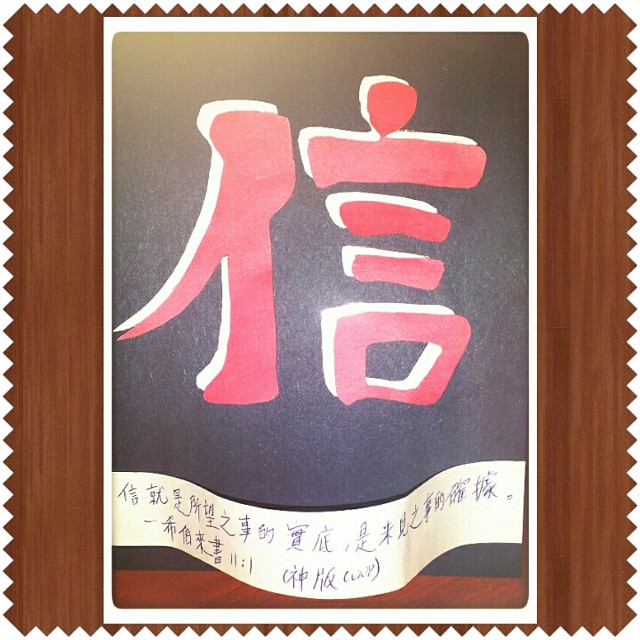 信
信就是所望之事的實底,是未見之事的確據。
—希伯來書11:1
(神版(CUNP)